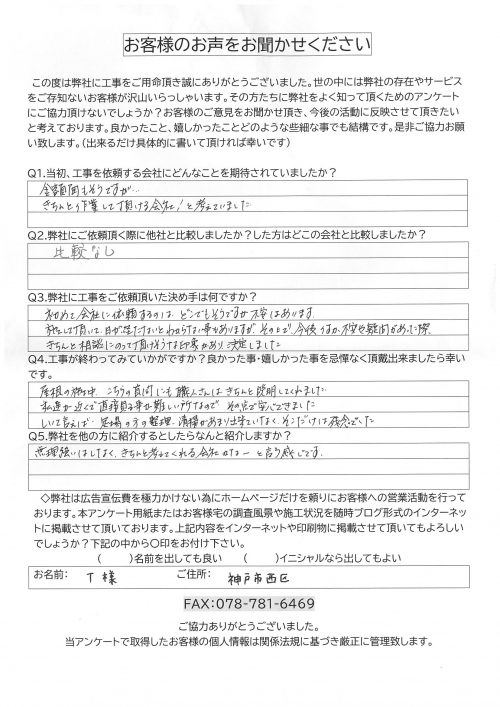 お客様のお声をお聞かせください
この度は弊社に工事をご用命頂き誠にありがとうございました。世の中には弊社の存在やサービス
をご存知ないお客様が沢山いらっしゃいます。その方たちに弊社をよく知って頂くためのアンケート
にご協力頂けないでしょうか？お客様のご意見をお聞かせ頂き、今後の活動に反映させて頂きたい
と考えております。良かったこと、嬉しかったことどのような些細な事でも結構です。是非ご協力お願
い致します。（出来るだけ具体的に書いて頂ければ幸いです）
Q1.当初、工事を依頼する会社にどんなことを期待されていましたか？
金額面もそうですが…
きちんと作業して頂ける会社！と考えていました
Q2.弊社にご依頼頂く際に他社と比較しましたか？した方はどこの会社と比較しましたか？
比較なし
Q3.弊社に工事をご依頼頂いた決め手は何ですか？
初めて会社に依頼するのは、どこでもそうですが不安はあります。
施工して頂いて、日が経たないとわからない事もありますが、その上で今後、不安や疑問があった際
きちんと相談にのって頂けそうな印象があり、決定しました
Q4.工事が終わってみていかがですか？良かった事・嬉しかった事を忌憚なく頂戴出来ましたら幸い
です。
屋根の補修中、こちらの質問にも職人さんはきちんと説明してくれました
私達が近くで直接見る事が難しい所なので、その点で安心できました
しいて言えば、足場の方の整理、清掃があまり出来ていなく、そこだけは残念でした
Q5.弊社を他の方に紹介するとしたらなんと紹介しますか？
無理強いはしなく、きちんと考えてくれる会社かなーと言う感じです。
◇弊社は広告宣伝費を極力かけない為にホームページだけを頼りにお客様への営業活動を行って
おります。本アンケート用紙またはお客様宅の調査風景や施工状況を随時ブログ形式のインターネッ
トに掲載させて頂いております。上記内容をインターネットや印刷物に掲載させて頂いてもよろしい
でしょうか？下記の中から〇印をお付け下さい。
（　　）名前を出しても良い　（　　）イニシャルなら出してもよい
お名前：　T 様　ご住所：　神戸市西区
FAX：078-781-6469
ご協力ありがとうございました。
当アンケートで取得したお客様の個人情報は関係法規に基づき厳正に管理致します。